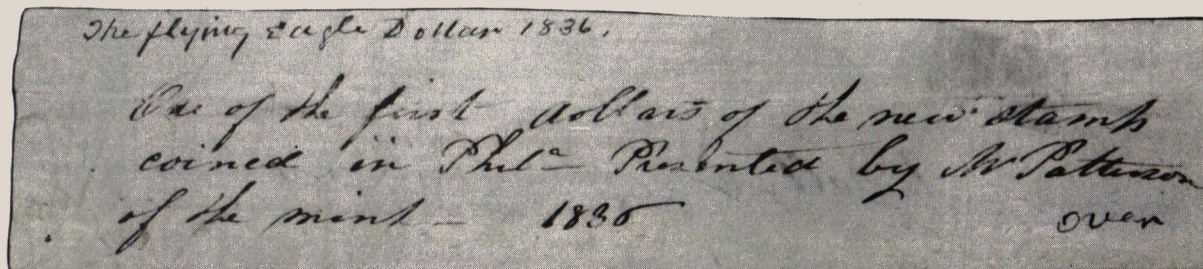 The flying Eagle Dollar 1836.
One of the first dollars of the new stamp
coined in Phila Presented by Mr Patterson
of the mint – 1836
over